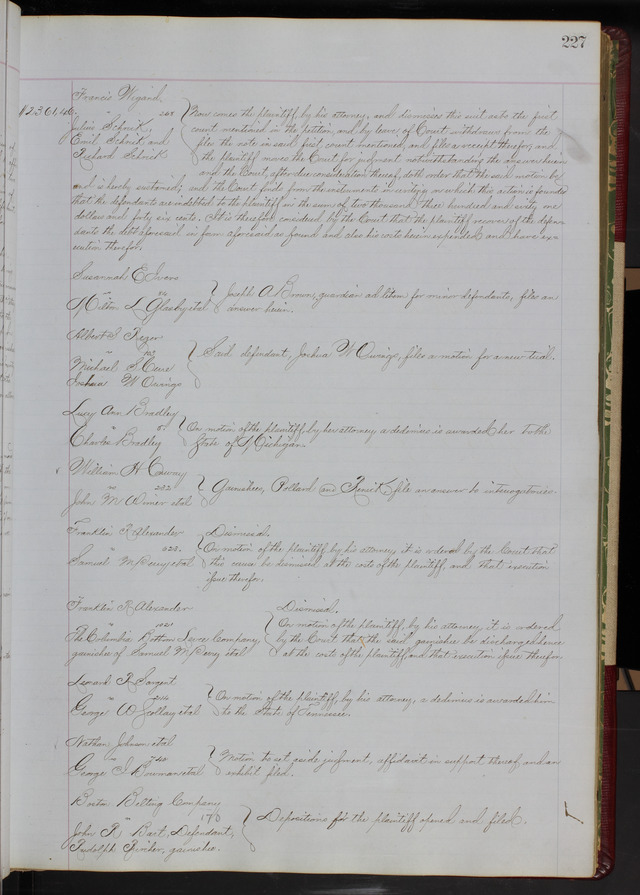 227
Francis Wigand
$2361,46. " 268 Now comes the plaintiff, by his attorney, and dismisses this suit as to the first
Julius Schrick, count mentioned in the petition, and by leave of Court withdraws from the
Emil Schrick and files the note in said first count mentioned, and files a receipt therefor, and
Richard Schrick the plaintiff moves the Court for judgment notwithstanding the answer herein
and the Court, after due consideration thereof, doth order that the said motion be
and is hereby sustained; and the Court finds from the instrument in writing on which this action is founded
that the defendants are indebted to the plaintiff in the sum of two thousand three hundred and sixty one
dollars and forty six cents. It is therefore considered by the Court that the plaintiff recover of the defen-
dants the debt aforesaid in form aforesaid as found and also his costs herein expended and have ex-
ecution therefor.
Susannah E. Ivers
" 84 Joseph A Brown, guardian ad litem for minor defendants, files an
Milton L Glasby et al answer herein.
Albert S Reger
" Said defendant, Joshua W Owings, files a motion for a new trial.
Michael S
Joshua W Owings
Lucy Ann Bradley
" On motion of the plaintiff, by her attorney a dedimus is awarded her to the
Charles Bradley State of Michigan.
William H
" 222 Garnishees, Pollard and files an answer to interrogatories.
John M et al
Franklin R Alexander Dismissed.
" 223. On motion of the plaintiff by his attorney, it is ordered by the Court that
Samuel et al this cause be dismissed at the costs of the plaintiff, and that execution
issue therefor.
Franklin R Alexander Dismissed.
" On motion of the plaintiff, by his attorney it is ordered
The Columbia Bottom Levee Company, by the Court that the said garnishee be discharged hence
garnishee of Samuel et al at the costs of the plaintiff, and that execution issue therefor
Leonard R Sargent
" On motion of the plaintiff, by his attorney, a dedimus is awarded him
George W et al to the State of Tennessee.
Nathan Johnson et al
" Motion to set aside judgment, affidavit in support thereof, and an
George S Bowman et al exhibit filed.
Boston Belting Company
" 170 Depositions for the plaintiff opened and filed.
John R Bart, Defendant,
Rudolph garnishee.